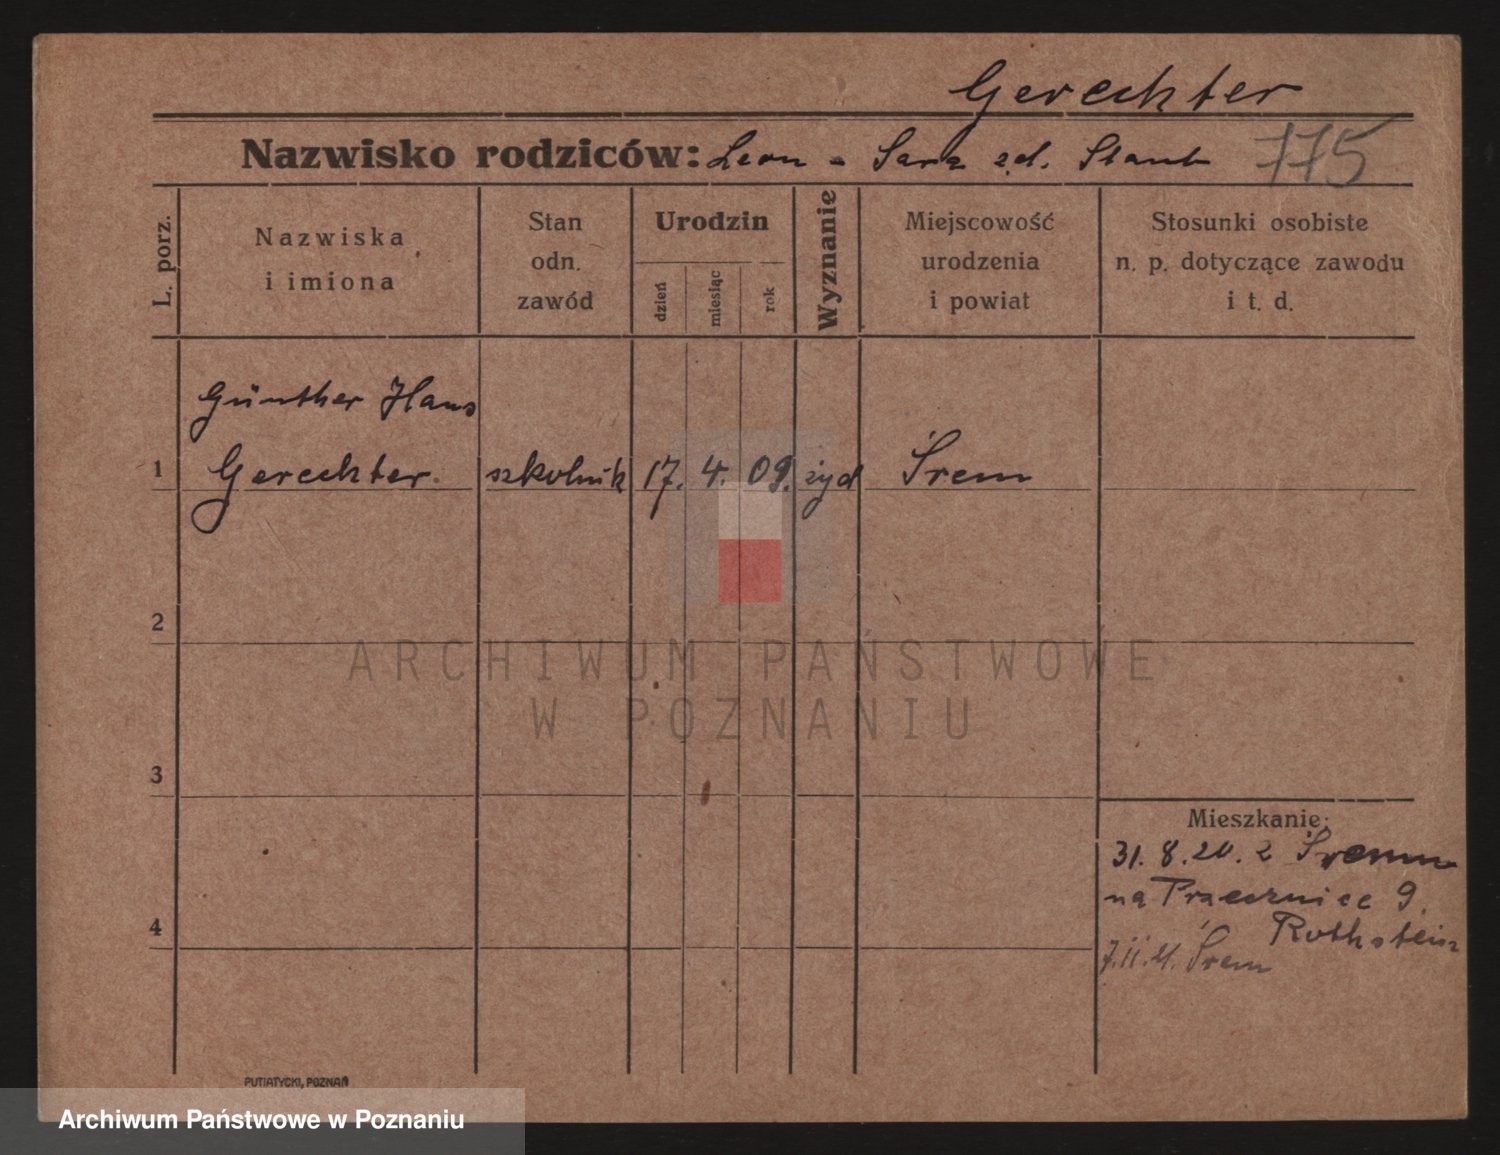 Gerechter
Nazwisko rodziców: Leon - Sara zd. Staub 775
L. porz.
Nazwiska
i imiona
Stan
odn.
zawód
Urodzin
dzień
miesiąc
rok
Wyznanie
Miejscowość
urodzenia
i powiat
Stosunki osobiste
n. p. dotyczące zawodu
i t. d.
Günther Hans
1 Gerechter szkolnik 17. 4. 09. żyd Śrem
2
ARCHIWUM PAŃSTWOWE
W POZNANIU
3
Mieszkanie:
31. 8. 20. z Śremu
na Przecznice 9.
4
Rothstein
7.11.21. Śrem
PUTIATYCKI, POZNAŃ
Archiwum Państwowe w Poznaniu